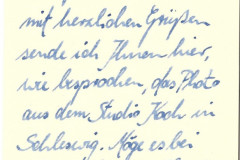 mit herzlichen Grüßen
sende ich Ihnen hier,
wie besprochen, das Photo
aus dem Studio Koch in
Schleswig. Möge es bei